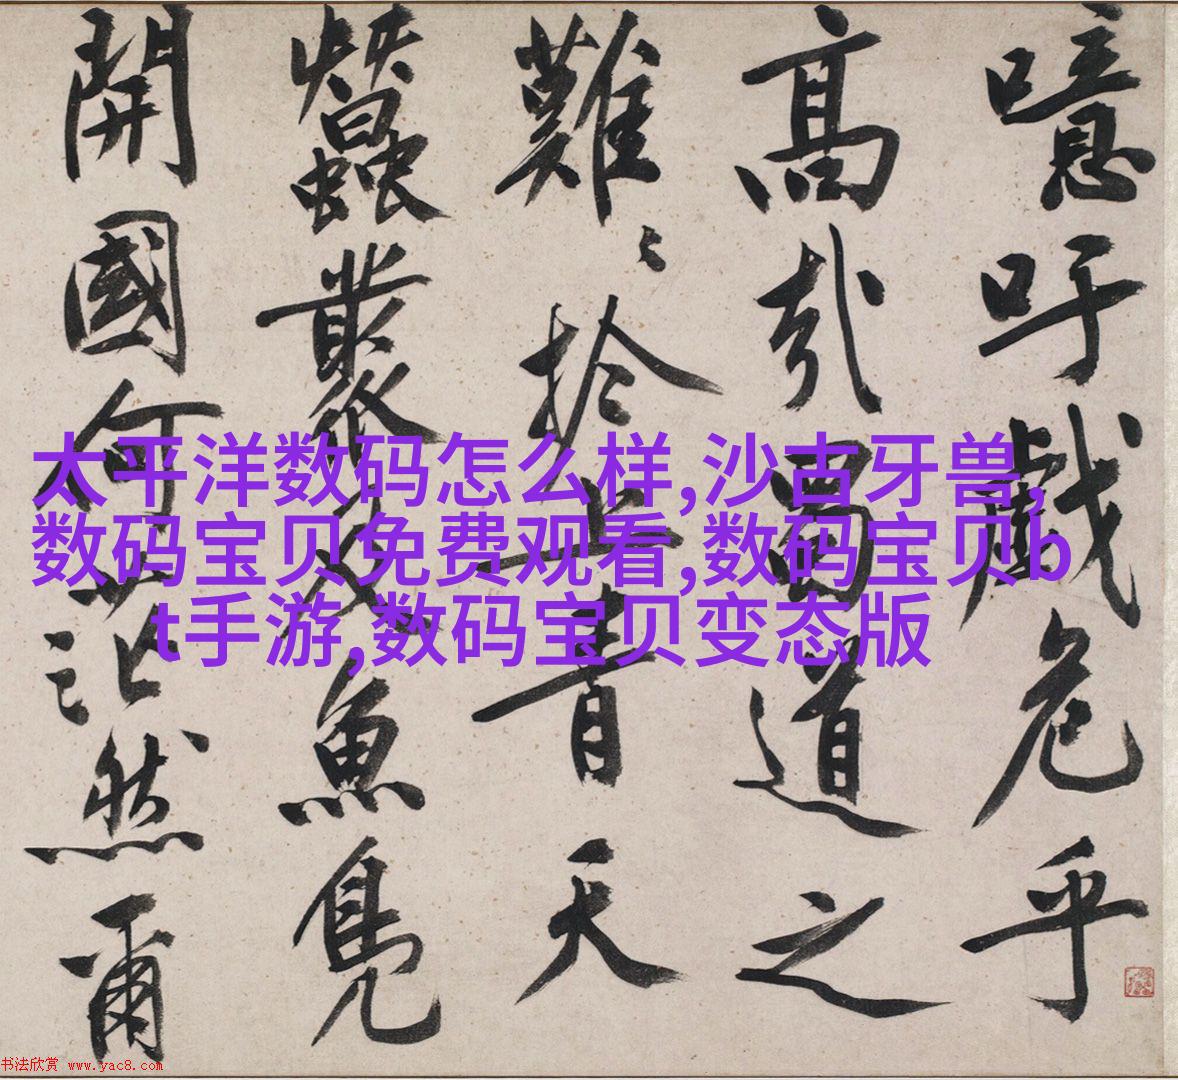 噫吁戲危乎
高哉蜀道之
難〻於上青天
蠶叢及魚鳧
開國何茫然爾
太平洋数码怎么样,沙古牙兽,
数码宝贝免费观看,数码宝贝b
t手游,数码宝贝变态版
书法欣赏 www.yac8.com